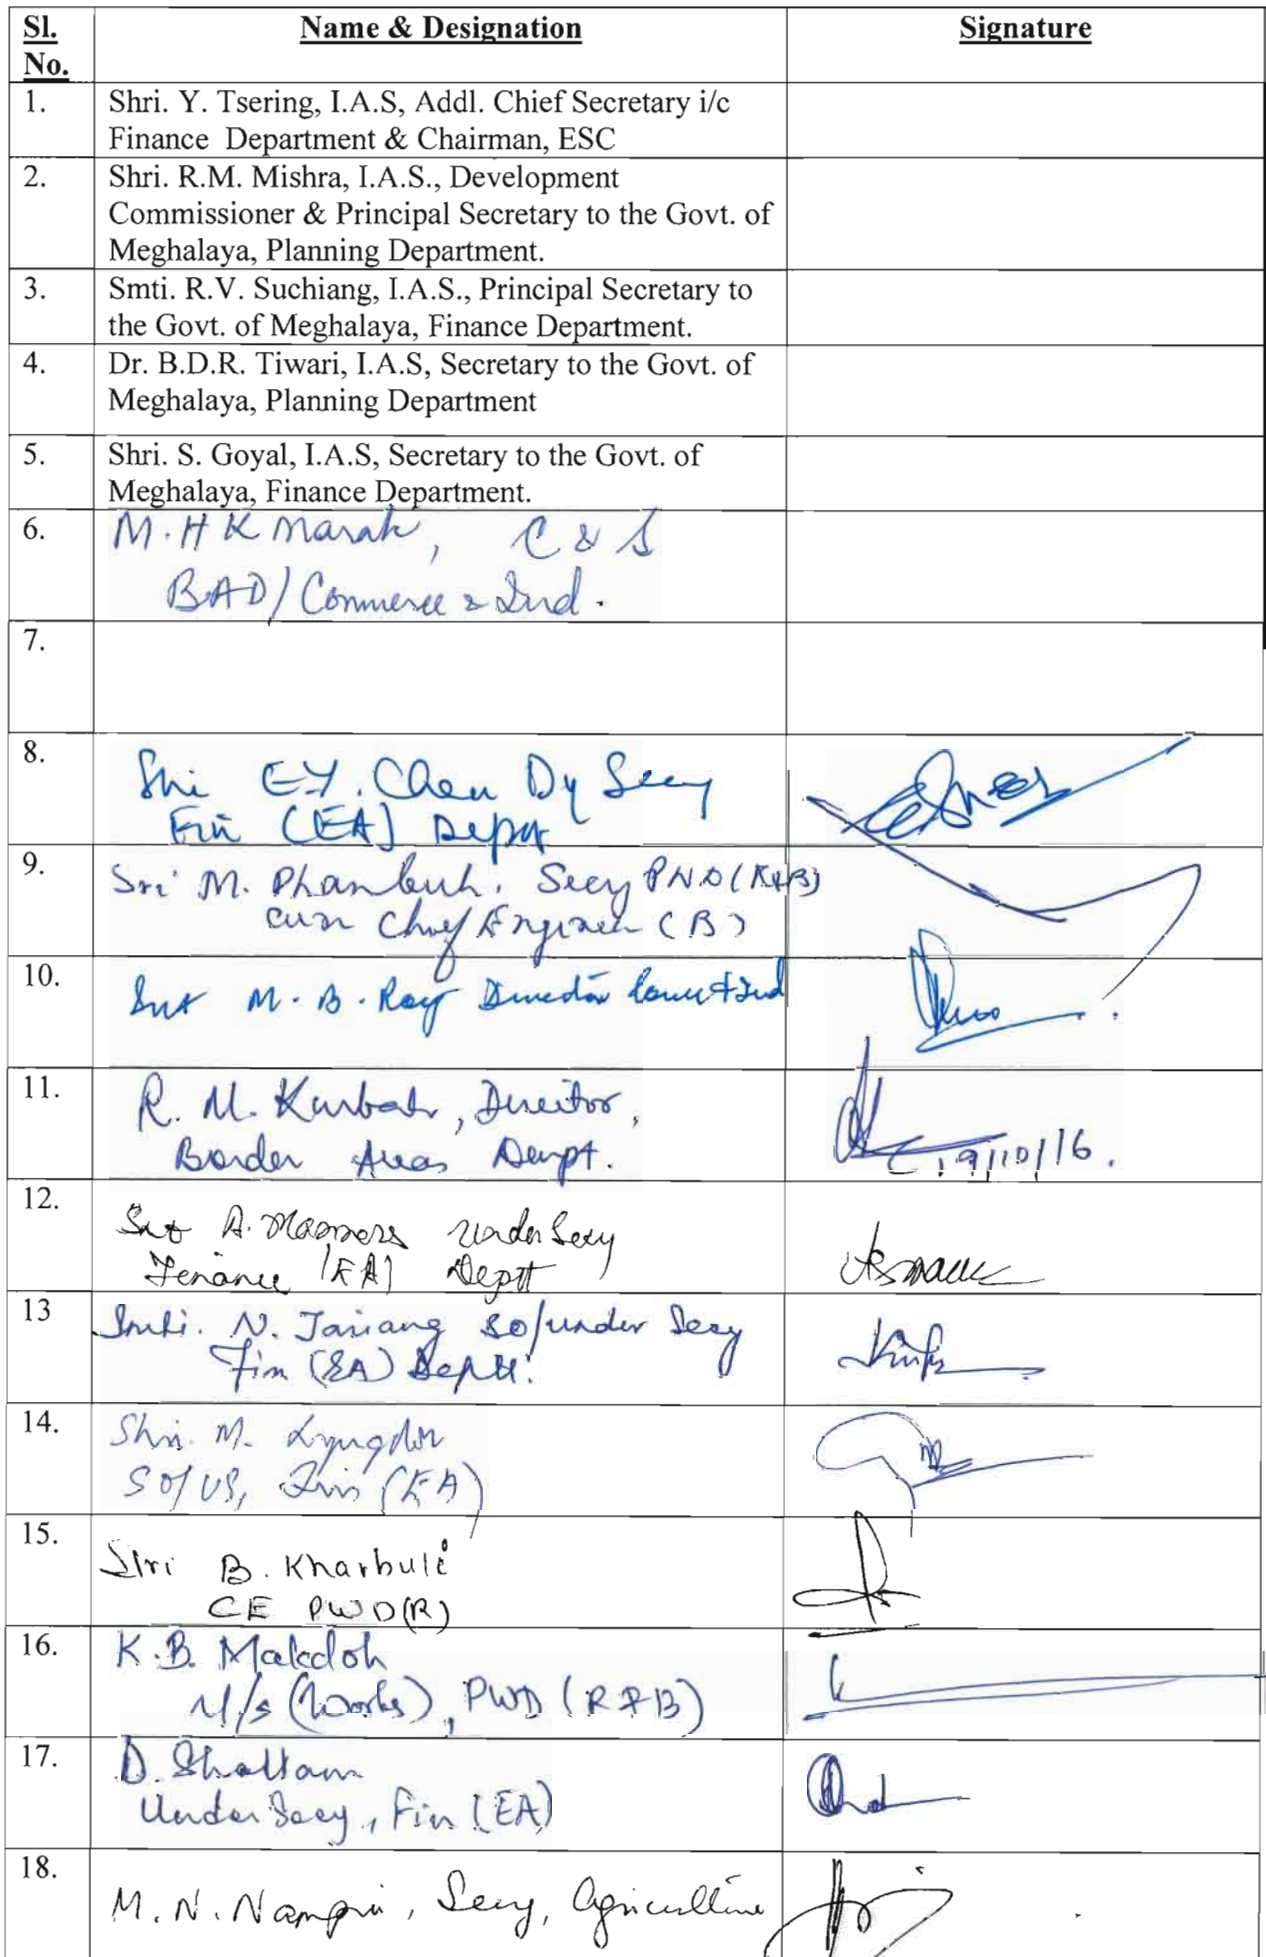 Sl. No.
Name & Designation
Signature
1.
Shri. Y. Tsering, I.A.S, Addl. Chief Secretary i/c
Finance Department & Chairman, ESC
2.
Shri. R.M. Mishra, I.A.S., Development
Commissioner & Principal Secretary to the Govt. of
Meghalaya, Planning Department.
3.
Smti. R.V. Suchiang, I.A.S., Principal Secretary to
the Govt. of Meghalaya, Finance Department.
4.
Dr. B.D.R. Tiwari, I.A.S, Secretary to the Govt. of
Meghalaya, Planning Department
5.
Shri. S. Goyal, I.A.S, Secretary to the Govt. of
Meghalaya, Finance Department.
6.
M. H K Marak, C & S
BAD/Commerce & Ind.
7.
8.
Shri E.Y. Chen Dy Secy
Fin (EA) Deptt
9.
Sri M. Phanbuh. Secy PWD (R&B)
cum Chief Engineer (B)
10.
Smt M. B. Ray Director Comm & Ind
11.
R. M. Kurbah, Director,
Border Areas Deptt.
19/10/16.
12.
Smt A. Under Secy
Finance (EA) Deptt
13
Smti. N. Jariang SO/under Secy
Fin (EA) Deptt.
14.
Shri. M. Lyngdoh
SO/US, Fin (EA)
15.
Shri B. Kharbuli
CE PWD(R)
16.
K.B. Makdoh
U/S (Works), PWD (R&B)
17.
D. Shallam
Under Secy, Fin (EA)
18.
M. N. Nampui, Secy, Agriculture